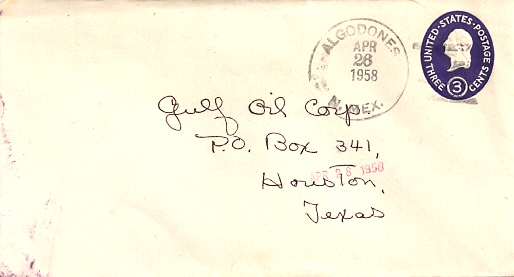 ALGODONES
APR
26
1958
N. MEX.
UNITED·STATES·POSTAGE
THREE 3 CENTS
Gulf Oil Corp.
P.O. Box 341,
APR 28 1958
Houston,
Texas